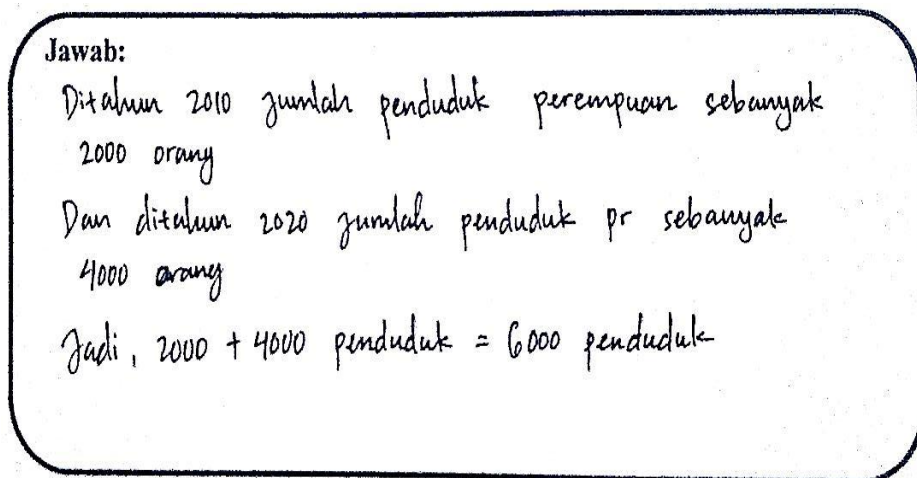 Jawab:
Ditahun 2010 jumlah penduduk perempuan sebanyak
2000 orang
Dan ditahun 2020 jumlah penduduk pr sebanyak
4000 orang
Jadi, 2000 + 4000 penduduk = 6000 penduduk